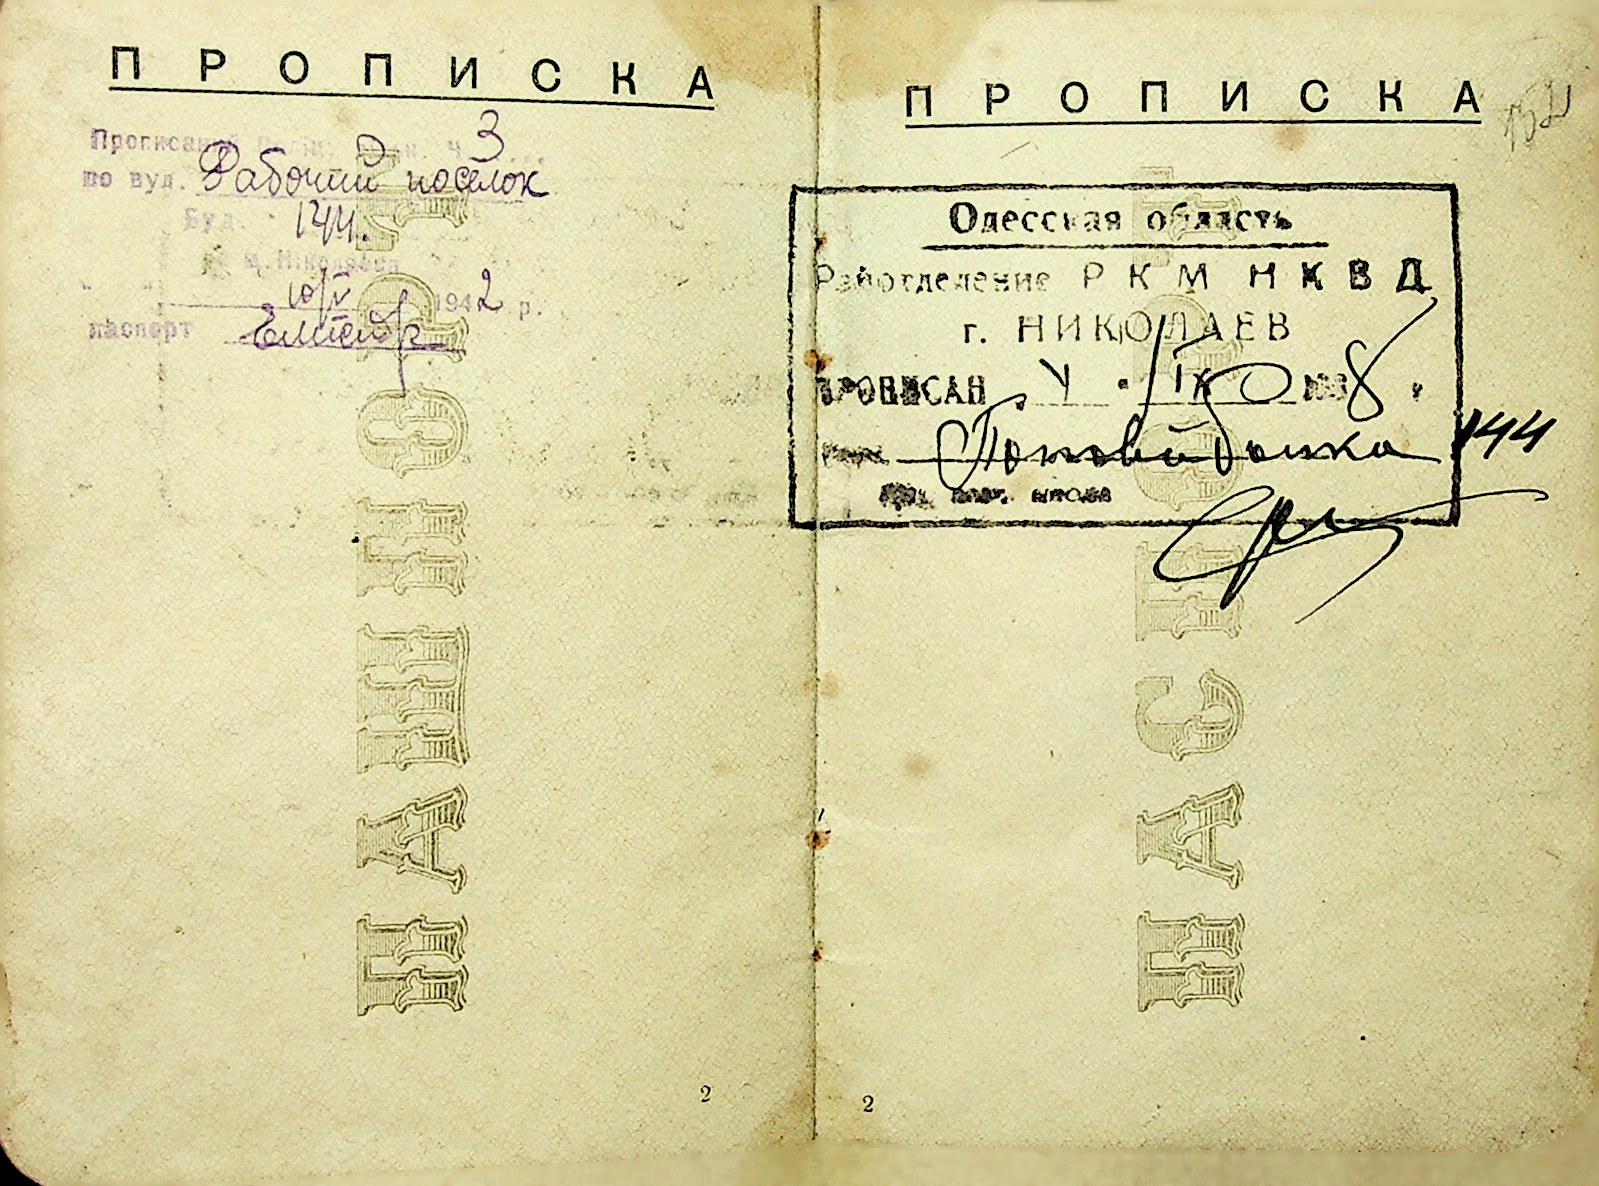 ПРОПИСКА
Прописаний 3
по вуд. Рабочий поселок
Буд. 144.
м. Ніколаєв
10/V 1942 р.
паспорт
ПАШПОРТ
2
ПРОПИСКА
Одесская область
Райотделение РКМ НКВД
г. НИКОЛАЕВ
ПРОПИСАН 4 · IX 1938 г.
144
ПАСПОРТ
2